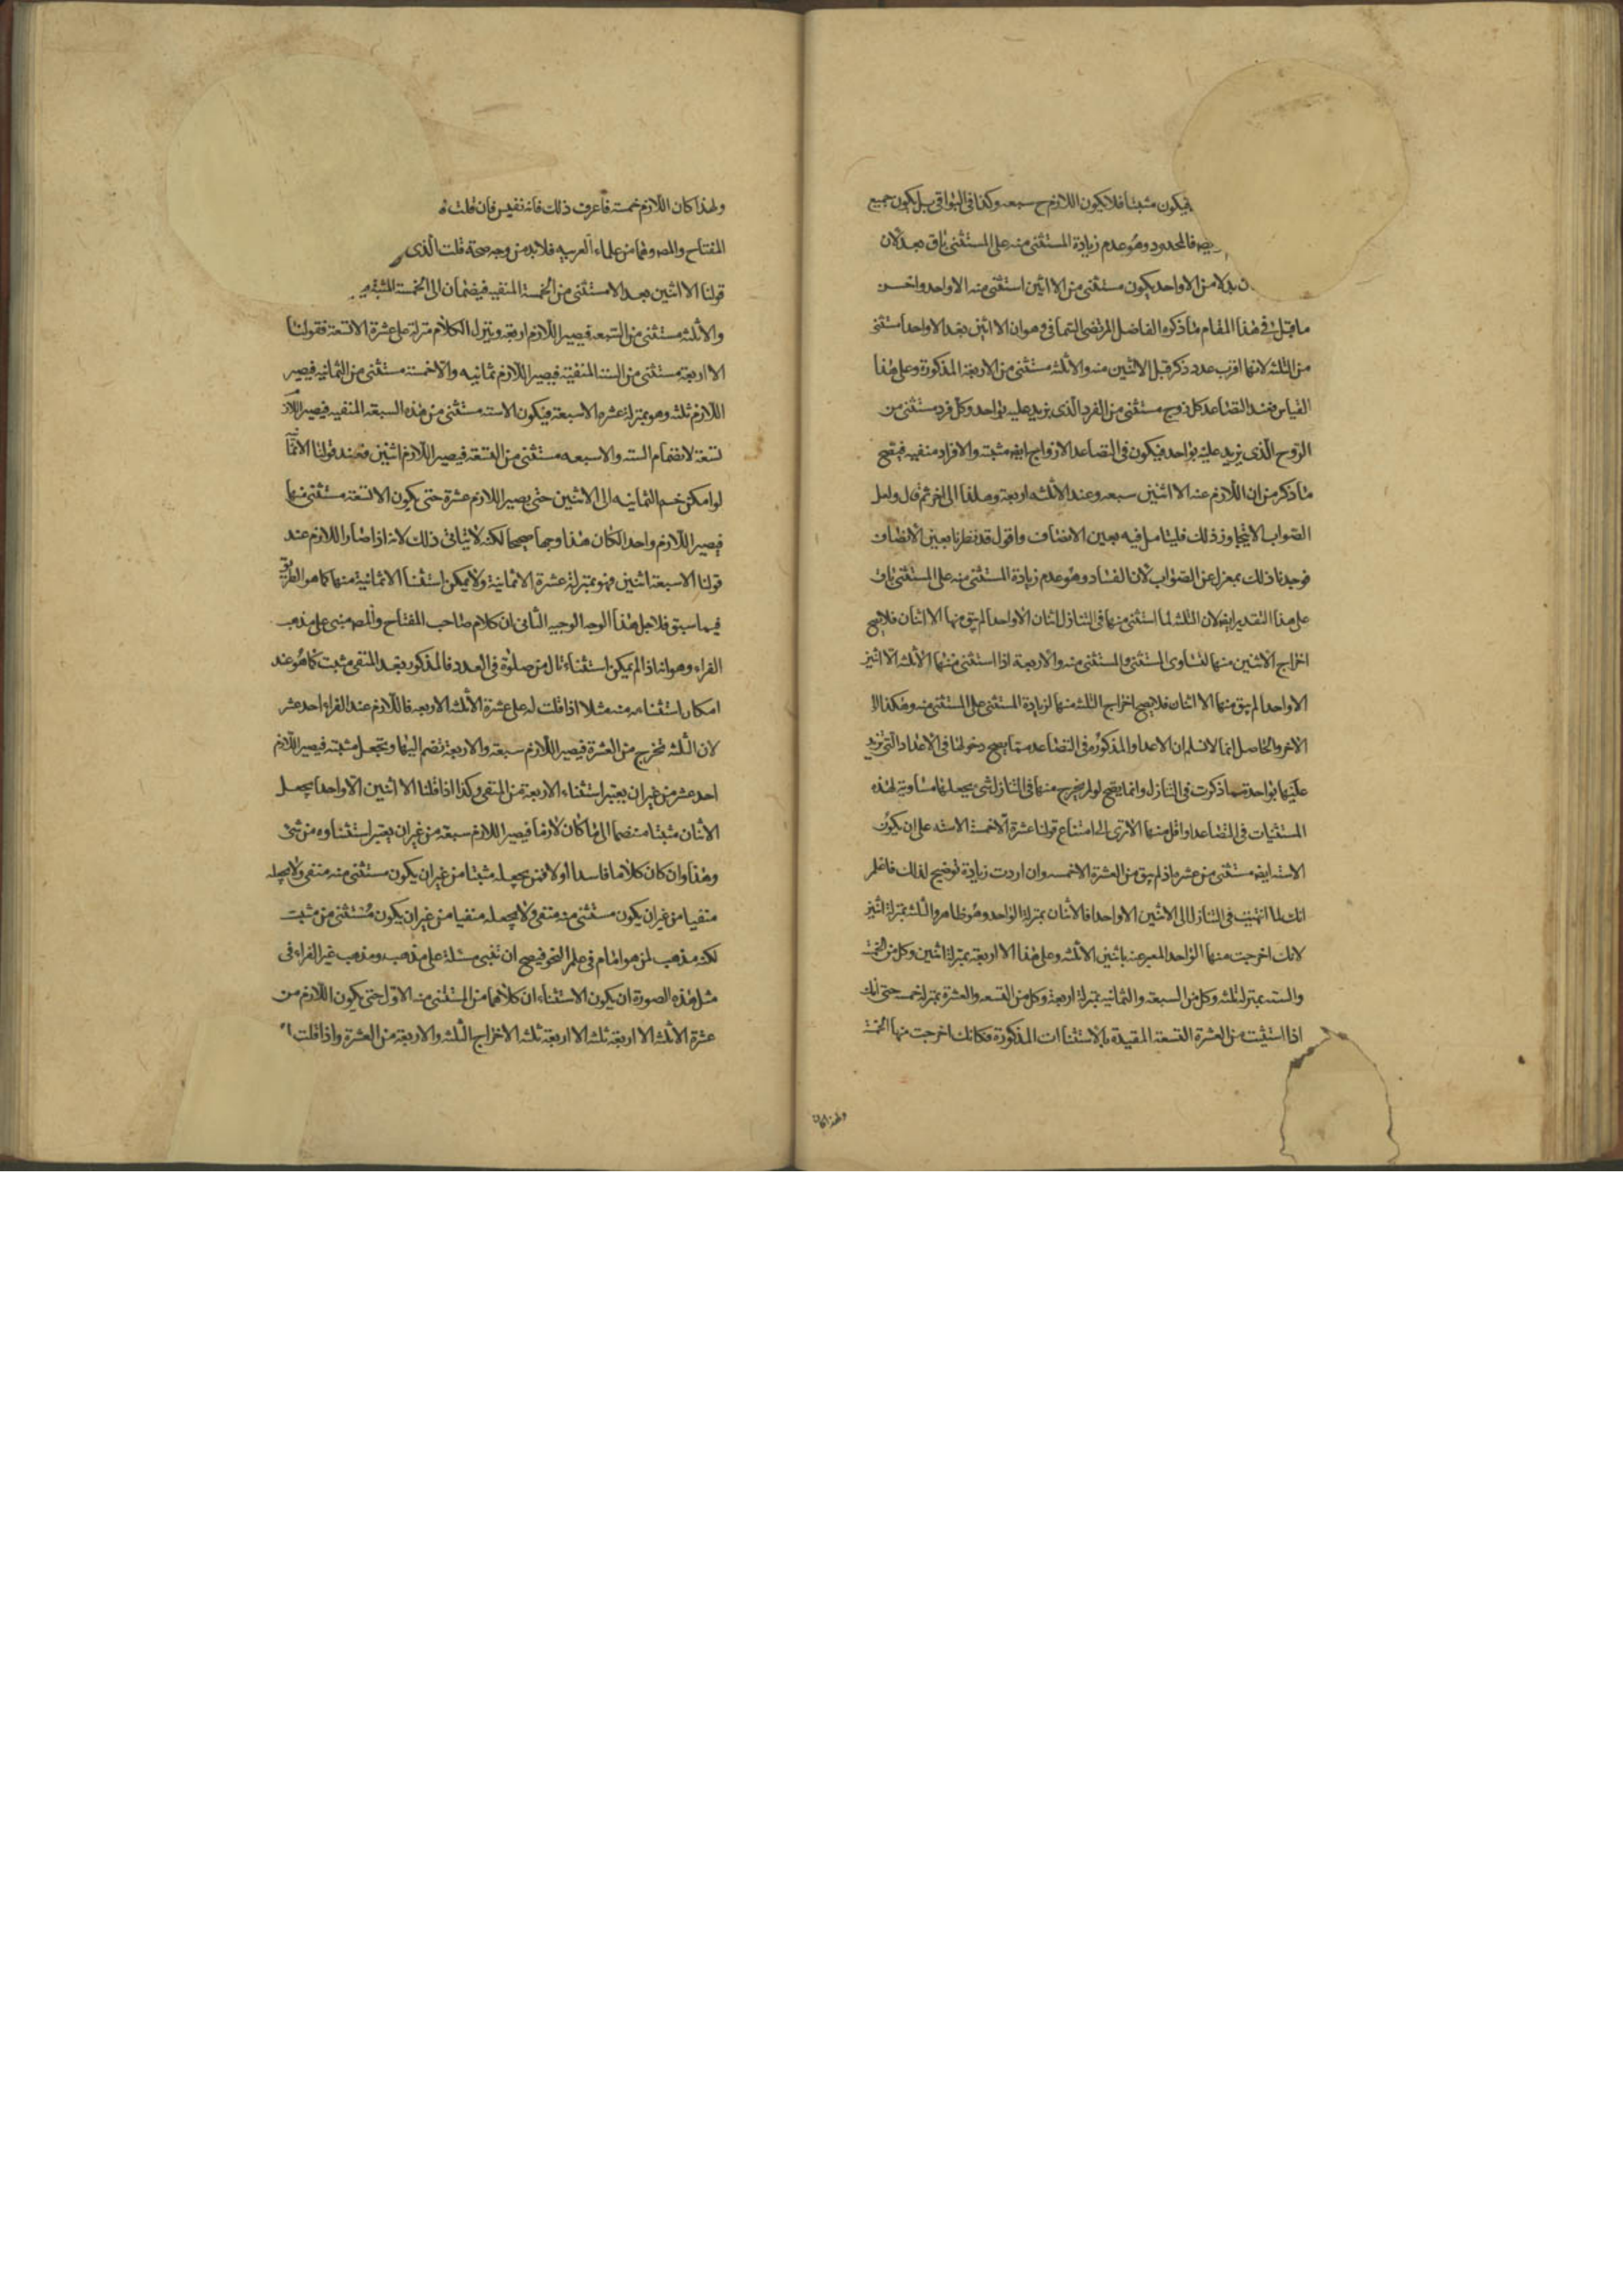 فيكون مثبتا فلا يكون اللازم ح سبعه وكذا فى البواقى بل يكون جميع
فالمحدود وهو عدم زيادة المستثنى منه على المستثنى باق بعد لان
بدلا من الا واحد يكون مستثنى من الا اثنين استثنى منه الا واحد واحسن
ما قيل فى هذا المقام ما ذكره الفاضل المرتضى وهو ان الا اثنين بعد الا واحدا مستثنى
من الثلثه لانها اقرب عدد ذكر قبل الاثنين منه والا ثلثه مستثنى من الاربعة المذكورة وعلى هذا
القياس فعند التصاعد كل زوج مستثنى من الفرد الذى يزيد عليه بواحد وكل فرد مستثنى من
الزوج الذى يزيد عليه بواحد فيكون فى التصاعد الازواج ايضه مثبته والافراد منفيه فيصح
ما ذكر من ان اللازم عند الا اثنين سبعه وعند الا ثلثه اربعة وهلم الى اخره ثم قال ولعل
الصواب لا يتجاوز ذلك فليتامل فيه بعين الانصاف واقول قد نظرنا بعين الانصاف
فوجدنا ذلك بمعزل عن الصواب لان الفساد وهو عدم زيادة المستثنى منه على المستثنى باق
على هذا التقدير ايضه لان الثلثه لما استثنى منها فى التنازل اثنان الا واحدا لم يبق منها الا اثنان فلا يصح
اخراج الاثنين منها لتساوى المستثنى والمستثنى منه والاربعة اذا استثنى منها الا ثلثه الا اثنين
الا واحدا لم يبق منها الا اثنان فلا يصح اخراج الثلثه منها لزيادة المستثنى على المستثنى منه وهكذا الى
الاخر والحاصل انما لا نسلم ان الاعداد المذكوره فى التصاعد مما يصح دخولها فى الاعداد التى تزيد
عليها بواحد مما ذكرت فى التنازل وانما يصح لو لم يخرج منها فى التنازل شى يجعلها مساوية لهذه
المستثنيات فى التصاعد او اقل منها الا ترى الى امتناع قولنا عشرة الا خمسة الا سته على ان يكون
الا سته ايضه مستثنى من عشره اذ لم يبق من العشرة الا خمسه وان اردت زيادة توضيح لذلك فاعلم
انك لما انتهيت فى التنازل الى الاثنين الا واحدا فالاثنان بمنزلة الواحد وهو ظاهر والثلثه بمنزلة اثنين
لانك اخرجت منها الواحد المعبر عنه باثنين الا ثلثه وعلى هذا الا اربعة بمنزلة اثنين وكل من الخمسة
والسته بمنزلة ثلثه وكل من السبعة والثمانيه بمنزلة اربعة وكل من التسعه والعشرة بمنزلة خمسه حتى انك
اذا استثنيت من العشرة التسعة المقيدة بالاستثناات المذكورة فكانك اخرجت منها الخمسة
ولهذا كان
ولهذا كان اللازم خمسة فاعرف ذلك فانه نفيس فان قلت
المفتاح والمصه وهما من علماء العربيه فلا بد من وجه صحة قلت الذى
قولنا الا اثنين بعد الا مستثنى من الخمسة المنفيه فيضمان الى الخمسة المثبته
والا ثلثه مستثنى من السبعه فيصير اللازم اربعة وينزل الكلام منزلة على عشرة الا تسعة فقولنا
الا اربعة مستثنى من الستة المنفية فيصير اللازم ثمانيه والا خمسة مستثنى من الثمانيه فيصير
اللازم ثلثه وهو بمنزلة عشره الا سبعة فيكون الا سته مستثنى من هذه السبعة المنفيه فيصير اللازم
تسعة لانضمام السته والا سبعه مستثنى من التسعة فيصير اللازم اثنين فعند قولنا الا ثمانية
لو امكن ضم الثمانيه الى الاثنين حتى يصير اللازم عشرة حتى يكون الا تسعة مستثنى منها
فيصير اللازم واحدا لكان هذا وجها صحيحا لكنه لا يتاتى ذلك لانه اذا صار اللازم عند
قولنا الا سبعة اثنين فهو بمنزلة عشرة الا ثمانية ولا يمكن استثنا الا ثمانية منها كما هو الطريق
فيما سبق فلاجل هذا الوجه الوجيه الثانى ان كلام صاحب المفتاح والمصه مبنى على مذهب
الفراء وهو انه اذا لم يمكن استثناء تال من متلوه فى العدد فالمذكور بعد المنفى مثبت كما هو عند
امكان استثنائه منه مثلا اذا قلت له على عشرة الا ثلثه الا اربعه فاللازم عند الفراء احد عشر
لان الثلثه تخرج من العشرة فيصير اللازم سبعة والاربعة تضم اليها وتجعل مثبته فيصير اللازم
احد عشر من غير ان يعتبر استثناء الاربعة من المنفى وكذا اذا قلنا الا اثنين الا واحدا يجعل
الاثنان مثبتا منضما الى ما كان لازما فيصير اللازم سبعة من غير ان يعتبر استثناوه من شئ
وهذا وان كان كلاما فاسدا اولا فمن يجعله مثبتا من غير ان يكون مستثنى منه منفى ولا يجعله
منفيا من غير ان يكون مستثنى منه منفى ولا يجعله منفيا من غير ان يكون مستثنى من مثبت
لكنه مذهب لمن هو امام فى علم النحو فيصح ان تبنى مسئلة على مذهبه ومذهب غير الفراء فى
مثل هذه الصورة ان يكون الاستثناء ان كلاهما من المستثنى منه الاول حتى يكون اللازم من
عشرة الا ثلثه الا اربعة ثلثه الا اربعة ثلثه لاخراج الثلثه والاربعة من العشرة واذا قلت